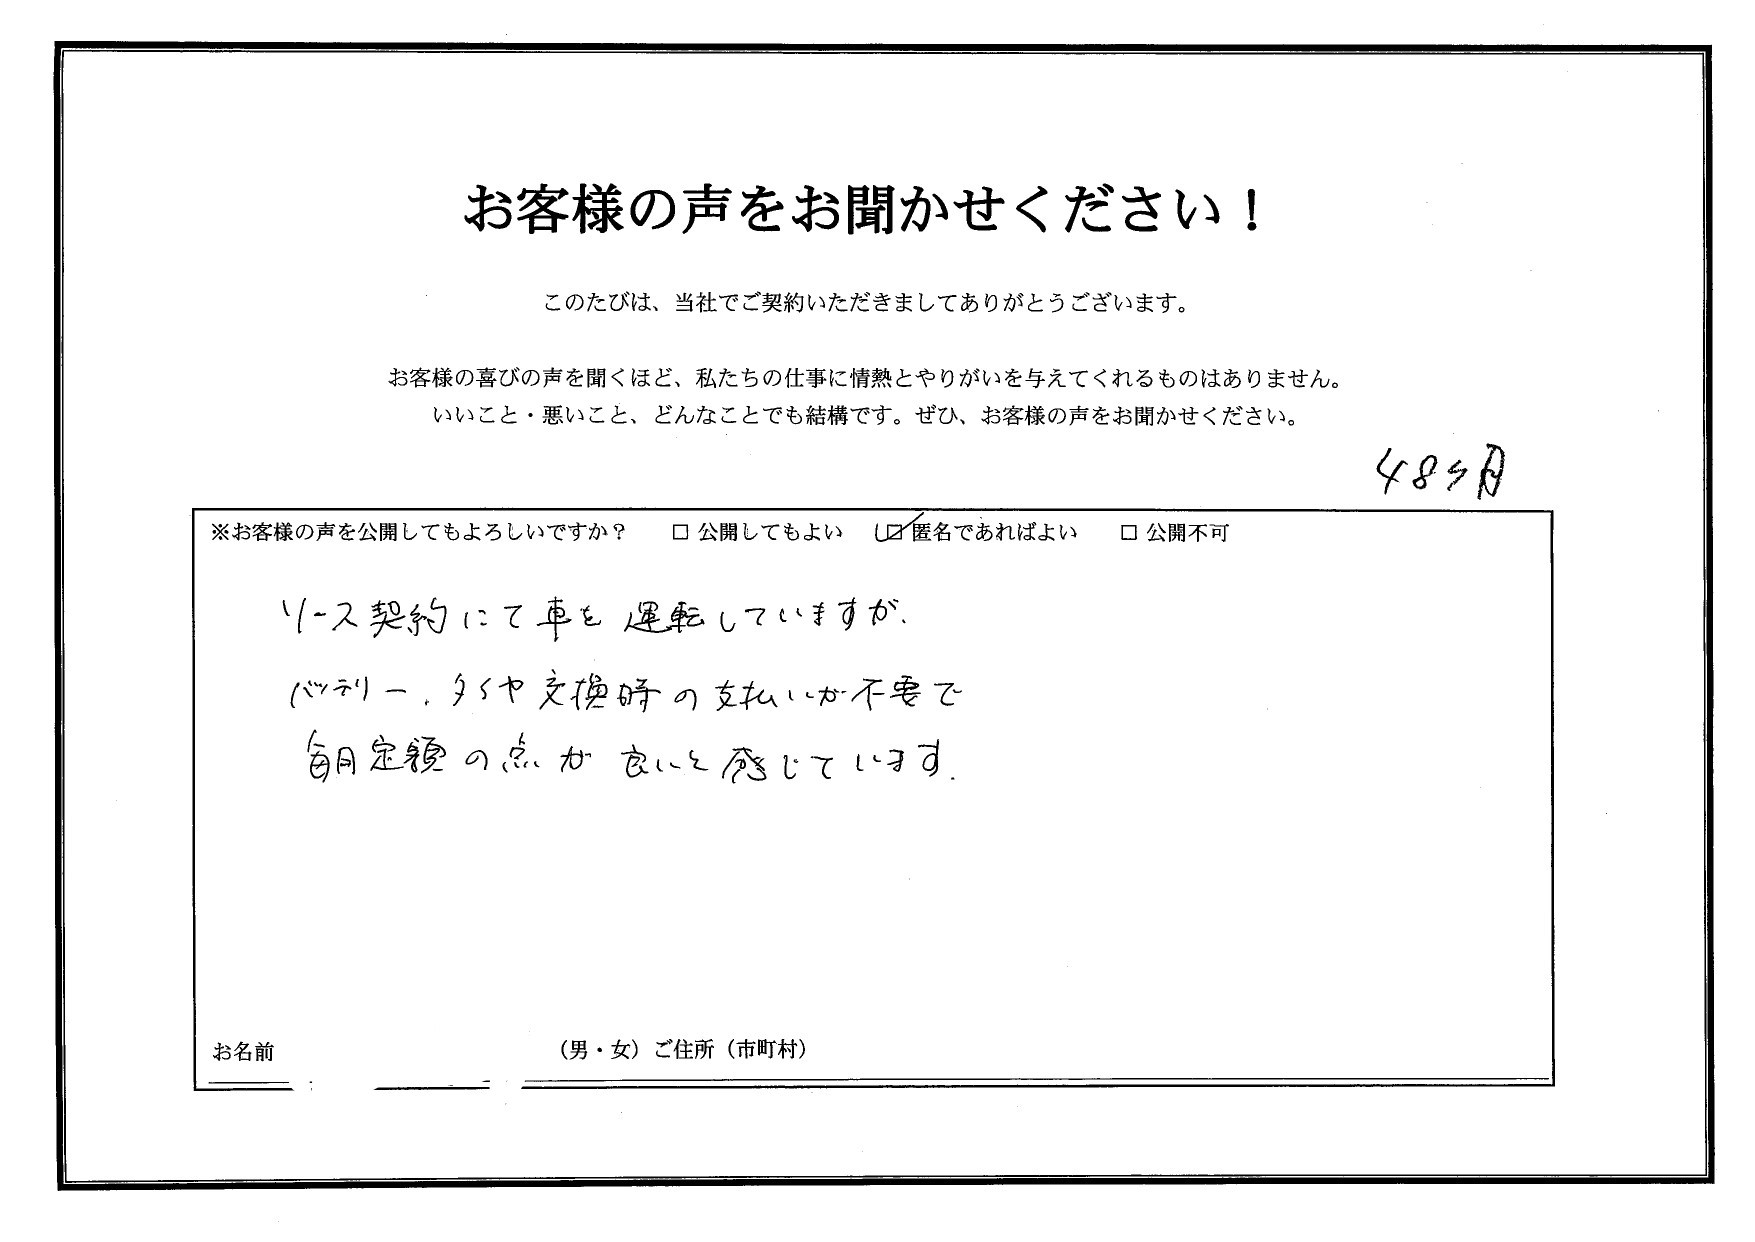 お客様の声をお聞かせください！
このたびは、当社でご契約いただきましてありがとうございます。
お客様の喜びの声を聞くほど、私たちの仕事に情熱とやりがいを与えてくれるものはありません。
いいこと・悪いこと、どんなことでも結構です。ぜひ、お客様の声をお聞かせください。
48ヶ月
※お客様の声を公開してもよろしいですか？ □ 公開してもよい ☑ 匿名であればよい □ 公開不可
リース契約にて車を運転していますが、
バッテリー、タイヤ交換時の支払いが不要で
毎月定額の点が良いと感じています。
お名前 （男・女）ご住所（市町村）